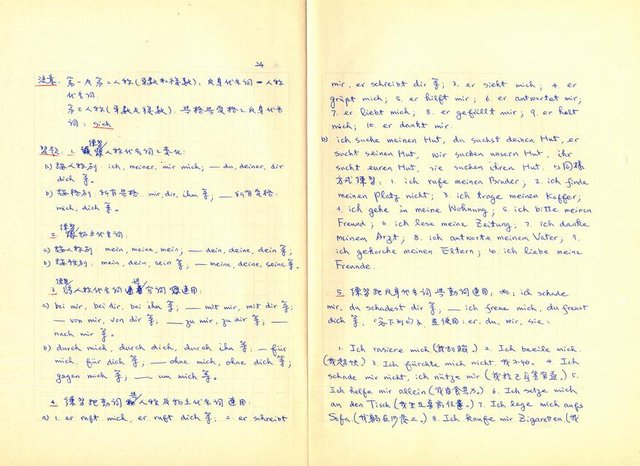 24
注意： 第一及第二人称(单数和複数)，反身代名词 = 人称
代名词.
第三人称(单数及複数). 与格与受格之反身代名
词： sich
习位： 1. 人称代名词之变化：
a) 按人称别： ich, meiner, mir mich; — du, deiner, dir
dich 等。
b) 按格别 与格： mir, dir, ihm 等; — 受格：
mich, dich 等。
2. 物主代名词：
a) 按人称别 mein, meine, mein; — dein, deine, dein 等;
b) 按性别： mein, dein, sein 等; — meine, deine, seine 等.
3. 人称代名词 介词 运用：
a) bei mir, bei dir, bei ihm 等; — mit mir, mit dir 等;
— von mir, von dir 等; — zu mir, zu dir 等; —
nach mir 等.
b) durch mich, durch dich, durch ihn 等; — für
mich, für dich 等; — ohne mich, ohne dich 等;
gegen mich 等; — um mich 等.
4. 練習把动词 人称及物主代名词 运用：
a) 1. er ruft mich, er ruft dich 等; 2. er schreibt
mir, er schreibt dir 等; 3. er sieht mich; 4. er
grüßt mich; 5. er hilft mir; 6. er antwortet mir;
7. er liebt mich; 8. er gefällt mir; 9. er holt
mich; 10. er dankt mir.
b) ich suche meinen Hut, du suchst deinen Hut, er
sucht seinen Hut, wir suchen unsern Hut, ihr
sucht euren Hut, sie suchen ihren Hut. 以同樣
方式練習： 1. ich rufe meinen Bruder; 2. ich finde
meinen Platz nicht; 3. ich trage meinen Koffer;
4. ich gehe in meine Wohnung; 5. ich bitte meinen
Freund; 6. ich lese meine Zeitung; 7. ich danke
meinem Arzt; 8. ich antworte meinem Vater; 9.
ich gehorche meinen Eltern; 10. ich liebe meine
Freunde.
5. 練習把反身代名词 与动词连用, ich schade
mir, du schadest dir 等; — ich freue mich, du freust
dich 等, 並使用： er, du, wir, sie:
1. Ich rasiere mich 2. Ich beeile mich.
3. Ich fürchte mich nicht 4. Ich
schade mir nicht, ich nütze mir 5.
Ich helfe mir allein 6. Ich setze mich
an den Tisch 7. Ich lege mich aufs
Sofa 8. Ich kaufe mir Zigaretten (我